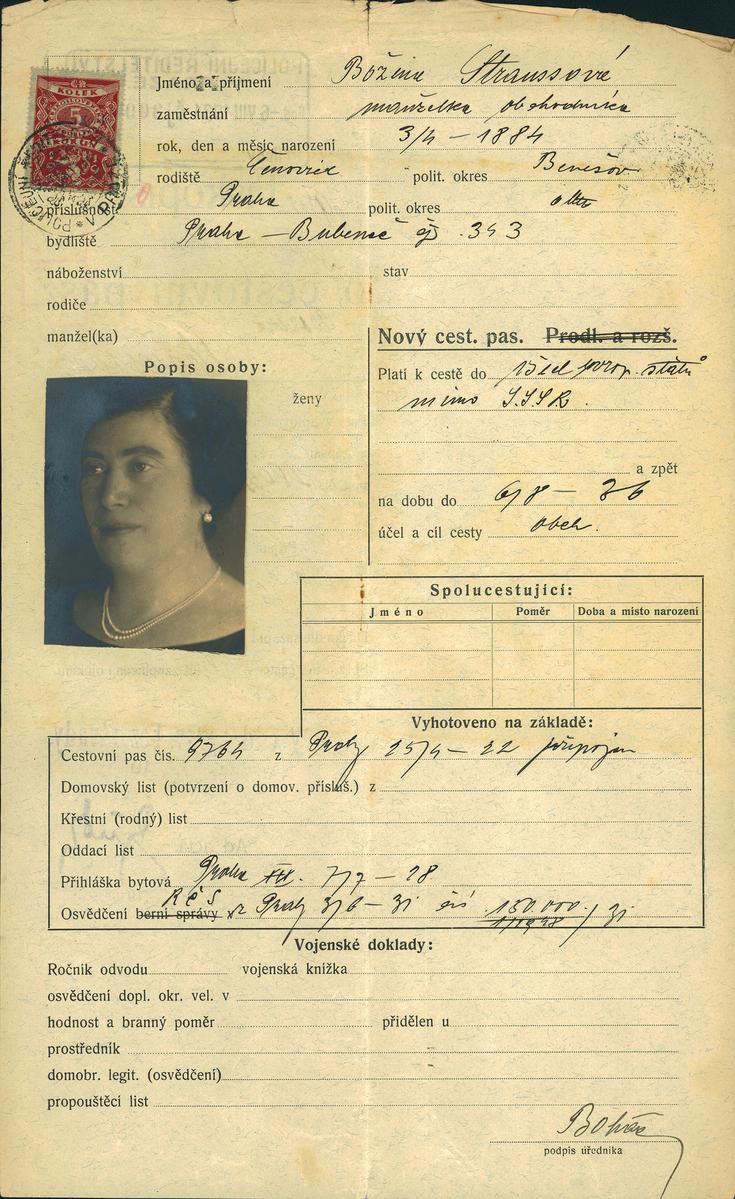 KOLEK
5
Jméno a příjmení Božena Straussová
zaměstnání manželka obchodníka
rok, den a měsíc narození 3/4 – 1884
rodiště polit. okres Benešov
příslušnost Praha polit. okres
bydliště Praha – Bubeneč čp. 343
náboženství stav
rodiče
manžel(ka)
Nový cest. pas. Prodl. a rozš.
Popis osoby:
Platí k cestě do všech evrop. států
mimo SSSR.
ženy
a zpět
na dobu do 6/8 – 36
účel a cíl cesty obch.
Spolucestující:
Jméno Poměr Doba a místo narození
Vyhotoveno na základě:
Cestovní pas čís. 9764 z Prahy 25/4 – 22 připojen
Domovský list (potvrzení o domov. přísluš.) z
Křestní (rodný) list
Oddací list
Přihláška bytová Praha 7/7 – 28
RČS
Osvědčení berní správy z Prahy 3/6 – 31 čís. 150.000/31
Vojenské doklady:
Ročník odvodu vojenská knížka
osvědčení dopl. okr. vel. v
hodnost a branný poměr přidělen u
prostředník
domobr. legit. (osvědčení)
propouštěcí list
podpis úředníka